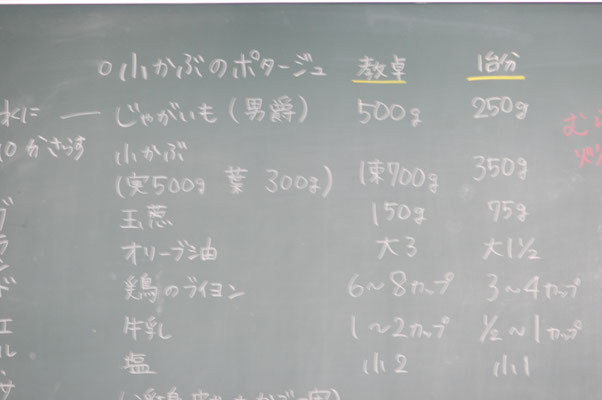 ○小かぶのポタージュ 教卓 1台分
水に ― じゃがいも(男爵) 500g 250g
10分さらす 小かぶ
(実500g 葉 300g) 1束700g 350g
玉葱 150g 75g
オリーブ油 大3 大1½
鶏のブイヨン 6〜8カップ 3〜4カップ
牛乳 1〜2カップ ½〜1カップ
塩 小2 小1